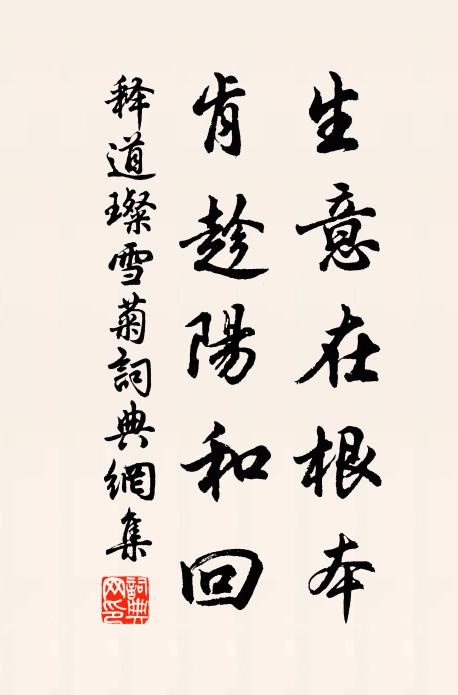 生意在根本
肯趁陽和回
释道璨雪菊詞典網集
詞典网印